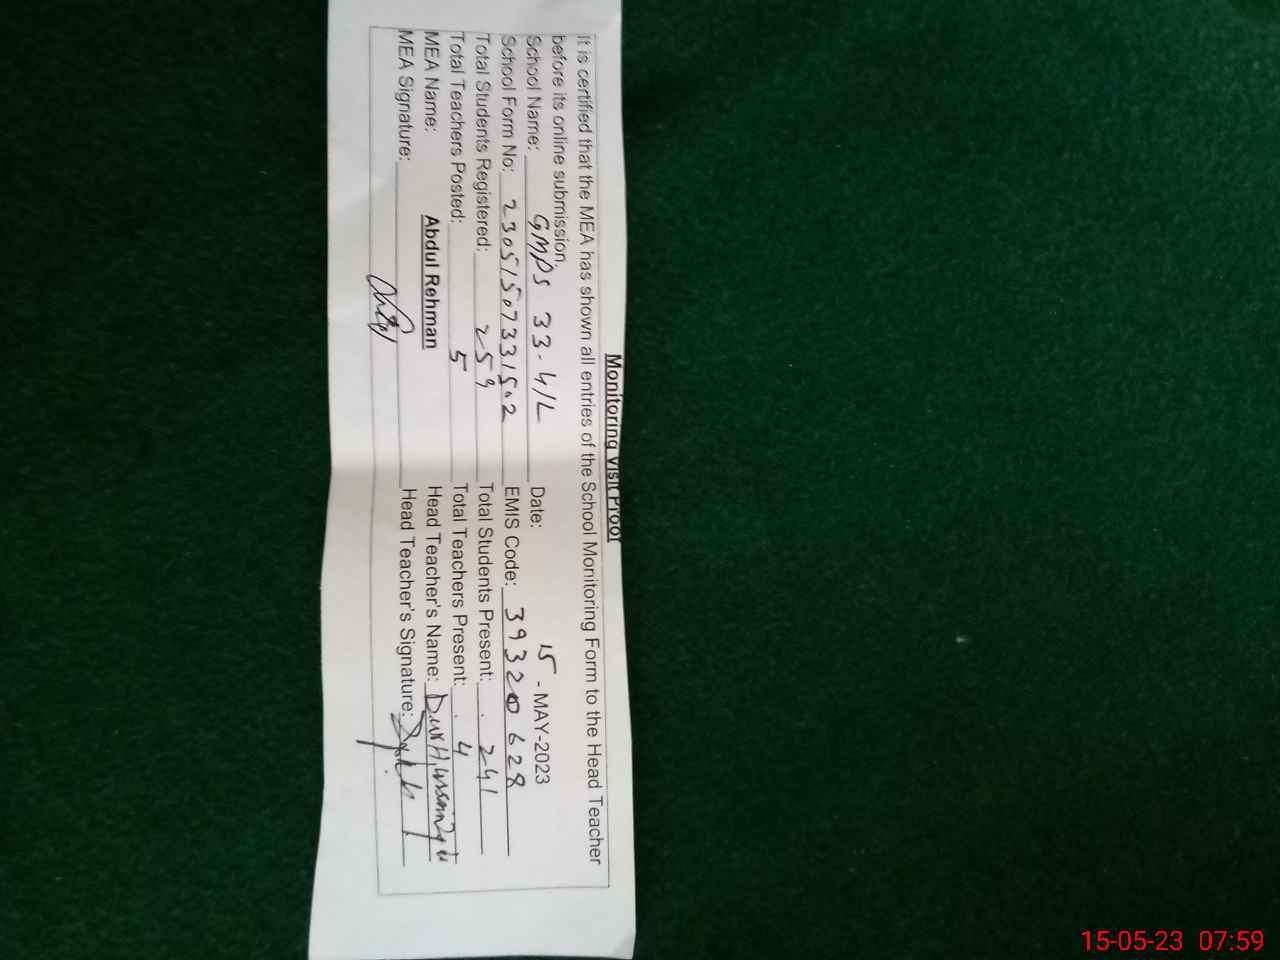 Monitoring Visit Proof
It is certified that the MEA has shown all entries of the School Monitoring Form to the Head Teacher
before its online submission.
School Name: GMPS 33-4/L Date: 15-MAY-2023
School Form No: 23051507331502 EMIS Code: 39320628
Total Students Registered: 259 Total Students Present: 241
Total Teachers Posted: 5 Total Teachers Present: 4
MEA Name: Abdul Rehman Head Teacher's Name:
MEA Signature: Head Teacher's Signature:
15-05-23 07:59